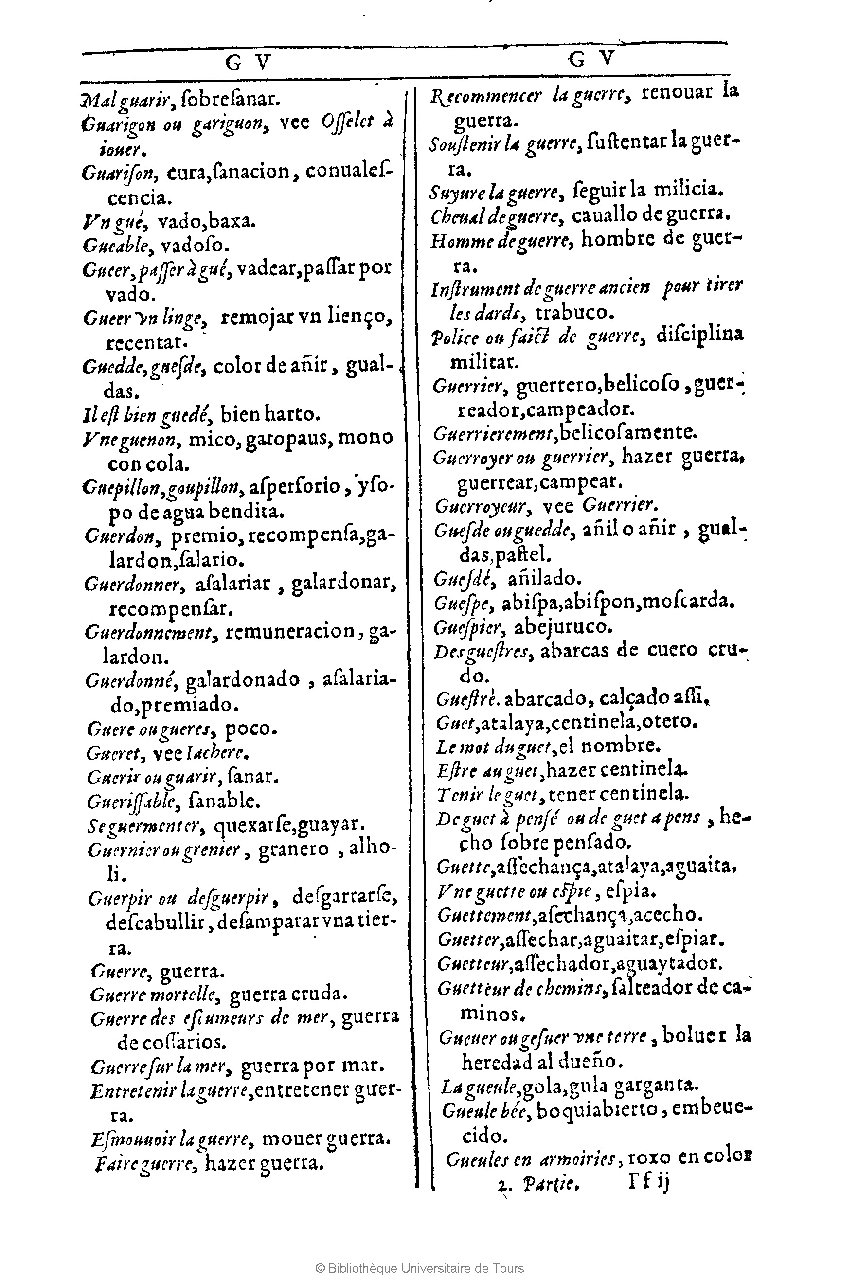 G V
Mal guarir, ſobreſanar.
Guarigon ou gariguon, vee Oſſelet à
iouer.
Guariſon, cura,ſanacion, conualeſ-
cencia.
Vn gué, vado,baxa.
Gueable, vadoſo.
Gueer, paſſer à gué, vadear,paſſar por
vado.
Gueer vn linge, remojar vn lienço,
recentar.
Guedde, gueſde, color de añir, gual-
das.
Il eſt bien guedé, bien harto.
Vne guenon, mico, gatopaus, mono
con cola.
Guepillon,goupillon, aſperſorio, yſo-
po de agua bendita.
Guerdon, premio, recompenſa,ga-
lardon,ſalario.
Guerdonner, aſalariar, galardonar,
recompenſar.
Guerdonnement, remuneracion, ga-
lardon.
Guerdonné, galardonado, aſalaria-
do,premiado.
Guere ou gueres, poco.
Gueret, vee Iachere.
Guerir ou guarir, ſanar.
Gueriſſable, ſanable.
Se guermenter, quexarſe,guayar.
Guernier ou grenier, granero, alho-
li.
Guerpir ou deſguerpir, deſgarrarſe,
deſcabullir, deſamparar vna tier-
ra.
Guerre, guerra.
Guerre mortelle, guerra cruda.
Guerre des eſcumeurs de mer, guerra
de coſſarios.
Guerre ſur la mer, guerra por mar.
Entretenir la guerre,entretener guer-
ra.
Eſmouuoir la guerre, mouer guerra.
Faire guerre, hazer guerra.
G V
Recommencer la guerre, renouar la
guerra.
Souſtenir la guerre, ſuſtentar la guer-
ra.
Suyure la guerre, ſeguir la milicia.
Cheual de guerre, cauallo de guerra.
Homme de guerre, hombre de guer-
ra.
Inſtrument de guerre ancien pour tirer
les dards, trabuco.
Police ou faict de guerre, diſciplina
militar.
Guerrier, guerrero,belicoſo, guer-
reador,campeador.
Guerrierement,belicoſamente.
Guerroyer ou guerrier, hazer guerra,
guerrear,campear.
Guerroyeur, vee Guerrier.
Gueſde ou guedde, añil o añir, gual-
das,paſtel.
Gueſdé, añilado.
Gueſpe, abiſpa,abiſpon,moſcarda.
Gueſpier, abejuruco.
Desgueſtres, abarcas de cuero cru-
do.
Gueſtrè. abarcado, calçado aſſi.
Guet,atalaya,centinela,otero.
Le mot du guet,el nombre.
Eſtre au guet,hazer centinela.
Tenir le guet, tener centinela.
De guet à penſé ou de guet a pens, he-
cho ſobre penſado.
Guette,aſſechança,atalaya,aguaita.
Vne guette ou eſpie, eſpia.
Guettement,aſechança,acecho.
Guetter,aſſechar,aguaitar,eſpiar.
Guetteur,aſſechador,aguaytador.
Guetteur de chemins, ſalteador de ca-
minos.
Gueuer ou geſuer vne terre, boluer la
heredad al dueño.
La gueule,gola,gula garganta.
Gueule bée, boquiabierto, embeue-
cido.
Gueules en armoiries, roxo en color
2. Partie. Ff ij
© Bibliothèque Universitaire de Tours